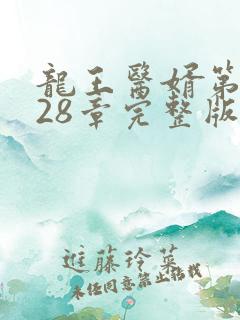 龍王醫婿第
28章完整版
進藤玲菜
未任同意禁止搭找